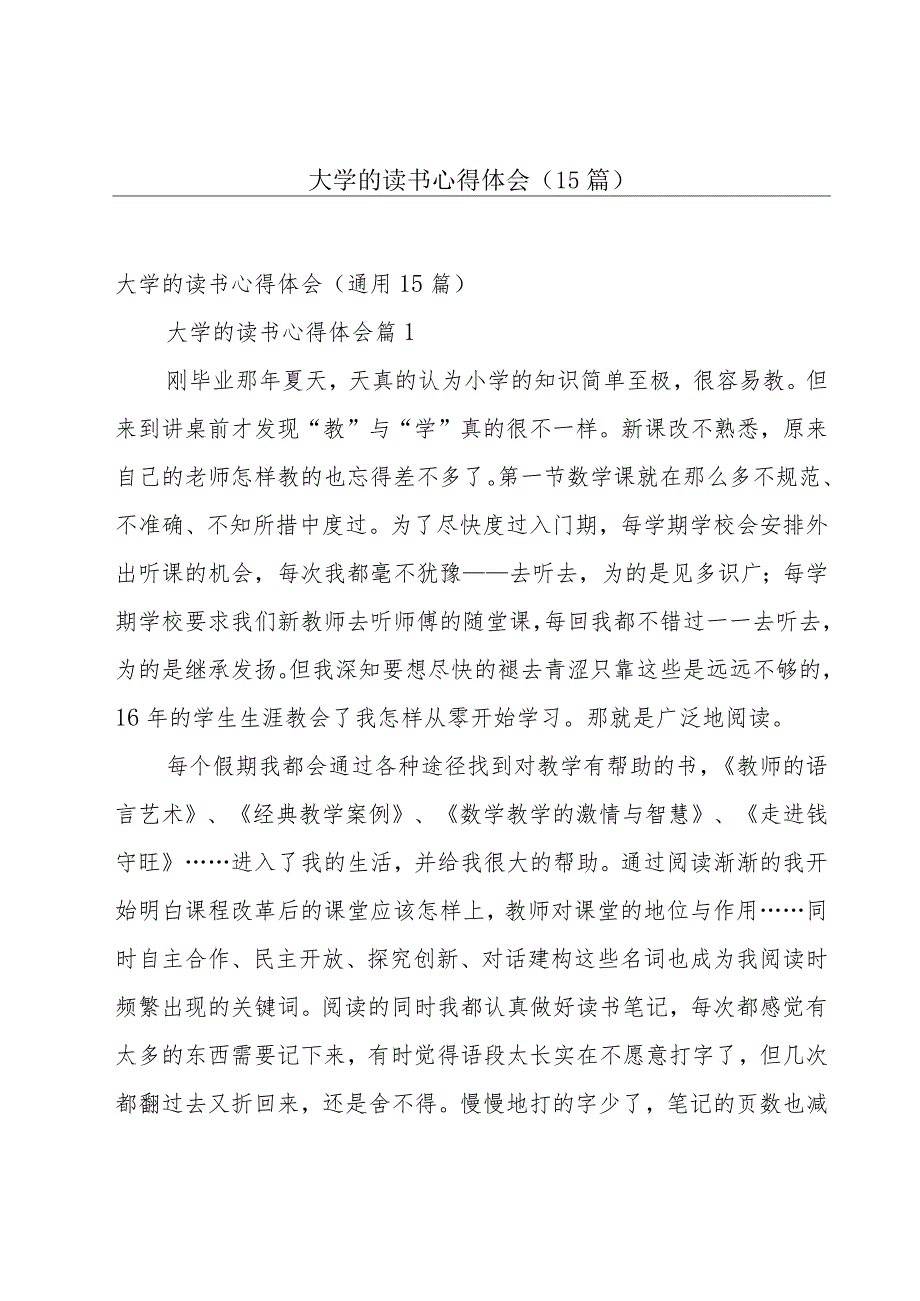 大学的读书心得体会（15 篇）
大学的读书心得体会（通用 15 篇）
大学的读书心得体会篇 1
刚毕业那年夏天，天真的认为小学的知识简单至极，很容易教。但
来到讲桌前才发现“教”与“学”真的很不一样。新课改不熟悉，原来
自己的老师怎样教的也忘得差不多了。第一节数学课就在那么多不规范、
不准确、不知所措中度过。为了尽快度过入门期，每学期学校会安排外
出听课的机会，每次我都毫不犹豫——去听去，为的是见多识广；每学
期学校要求我们新教师去听师傅的随堂课，每回我都不错过一一去听去，
为的是继承发扬。但我深知要想尽快的褪去青涩只靠这些是远远不够的，
16 年的学生生涯教会了我怎样从零开始学习。那就是广泛地阅读。
每个假期我都会通过各种途径找到对教学有帮助的书，《教师的语
言艺术》、《经典教学案例》、《数学教学的激情与智慧》、《走进钱
守旺》……进入了我的生活，并给我很大的帮助。通过阅读渐渐的我开
始明白课程改革后的课堂应该怎样上，教师对课堂的地位与作用……同
时自主合作、民主开放、探究创新、对话建构这些名词也成为我阅读时
频繁出现的关键词。阅读的同时我都认真做好读书笔记，每次都感觉有
太多的东西需要记下来，有时觉得语段太长实在不愿意打字了，但几次
都翻过去又折回来，还是舍不得。慢慢地打的字少了，笔记的页数也减